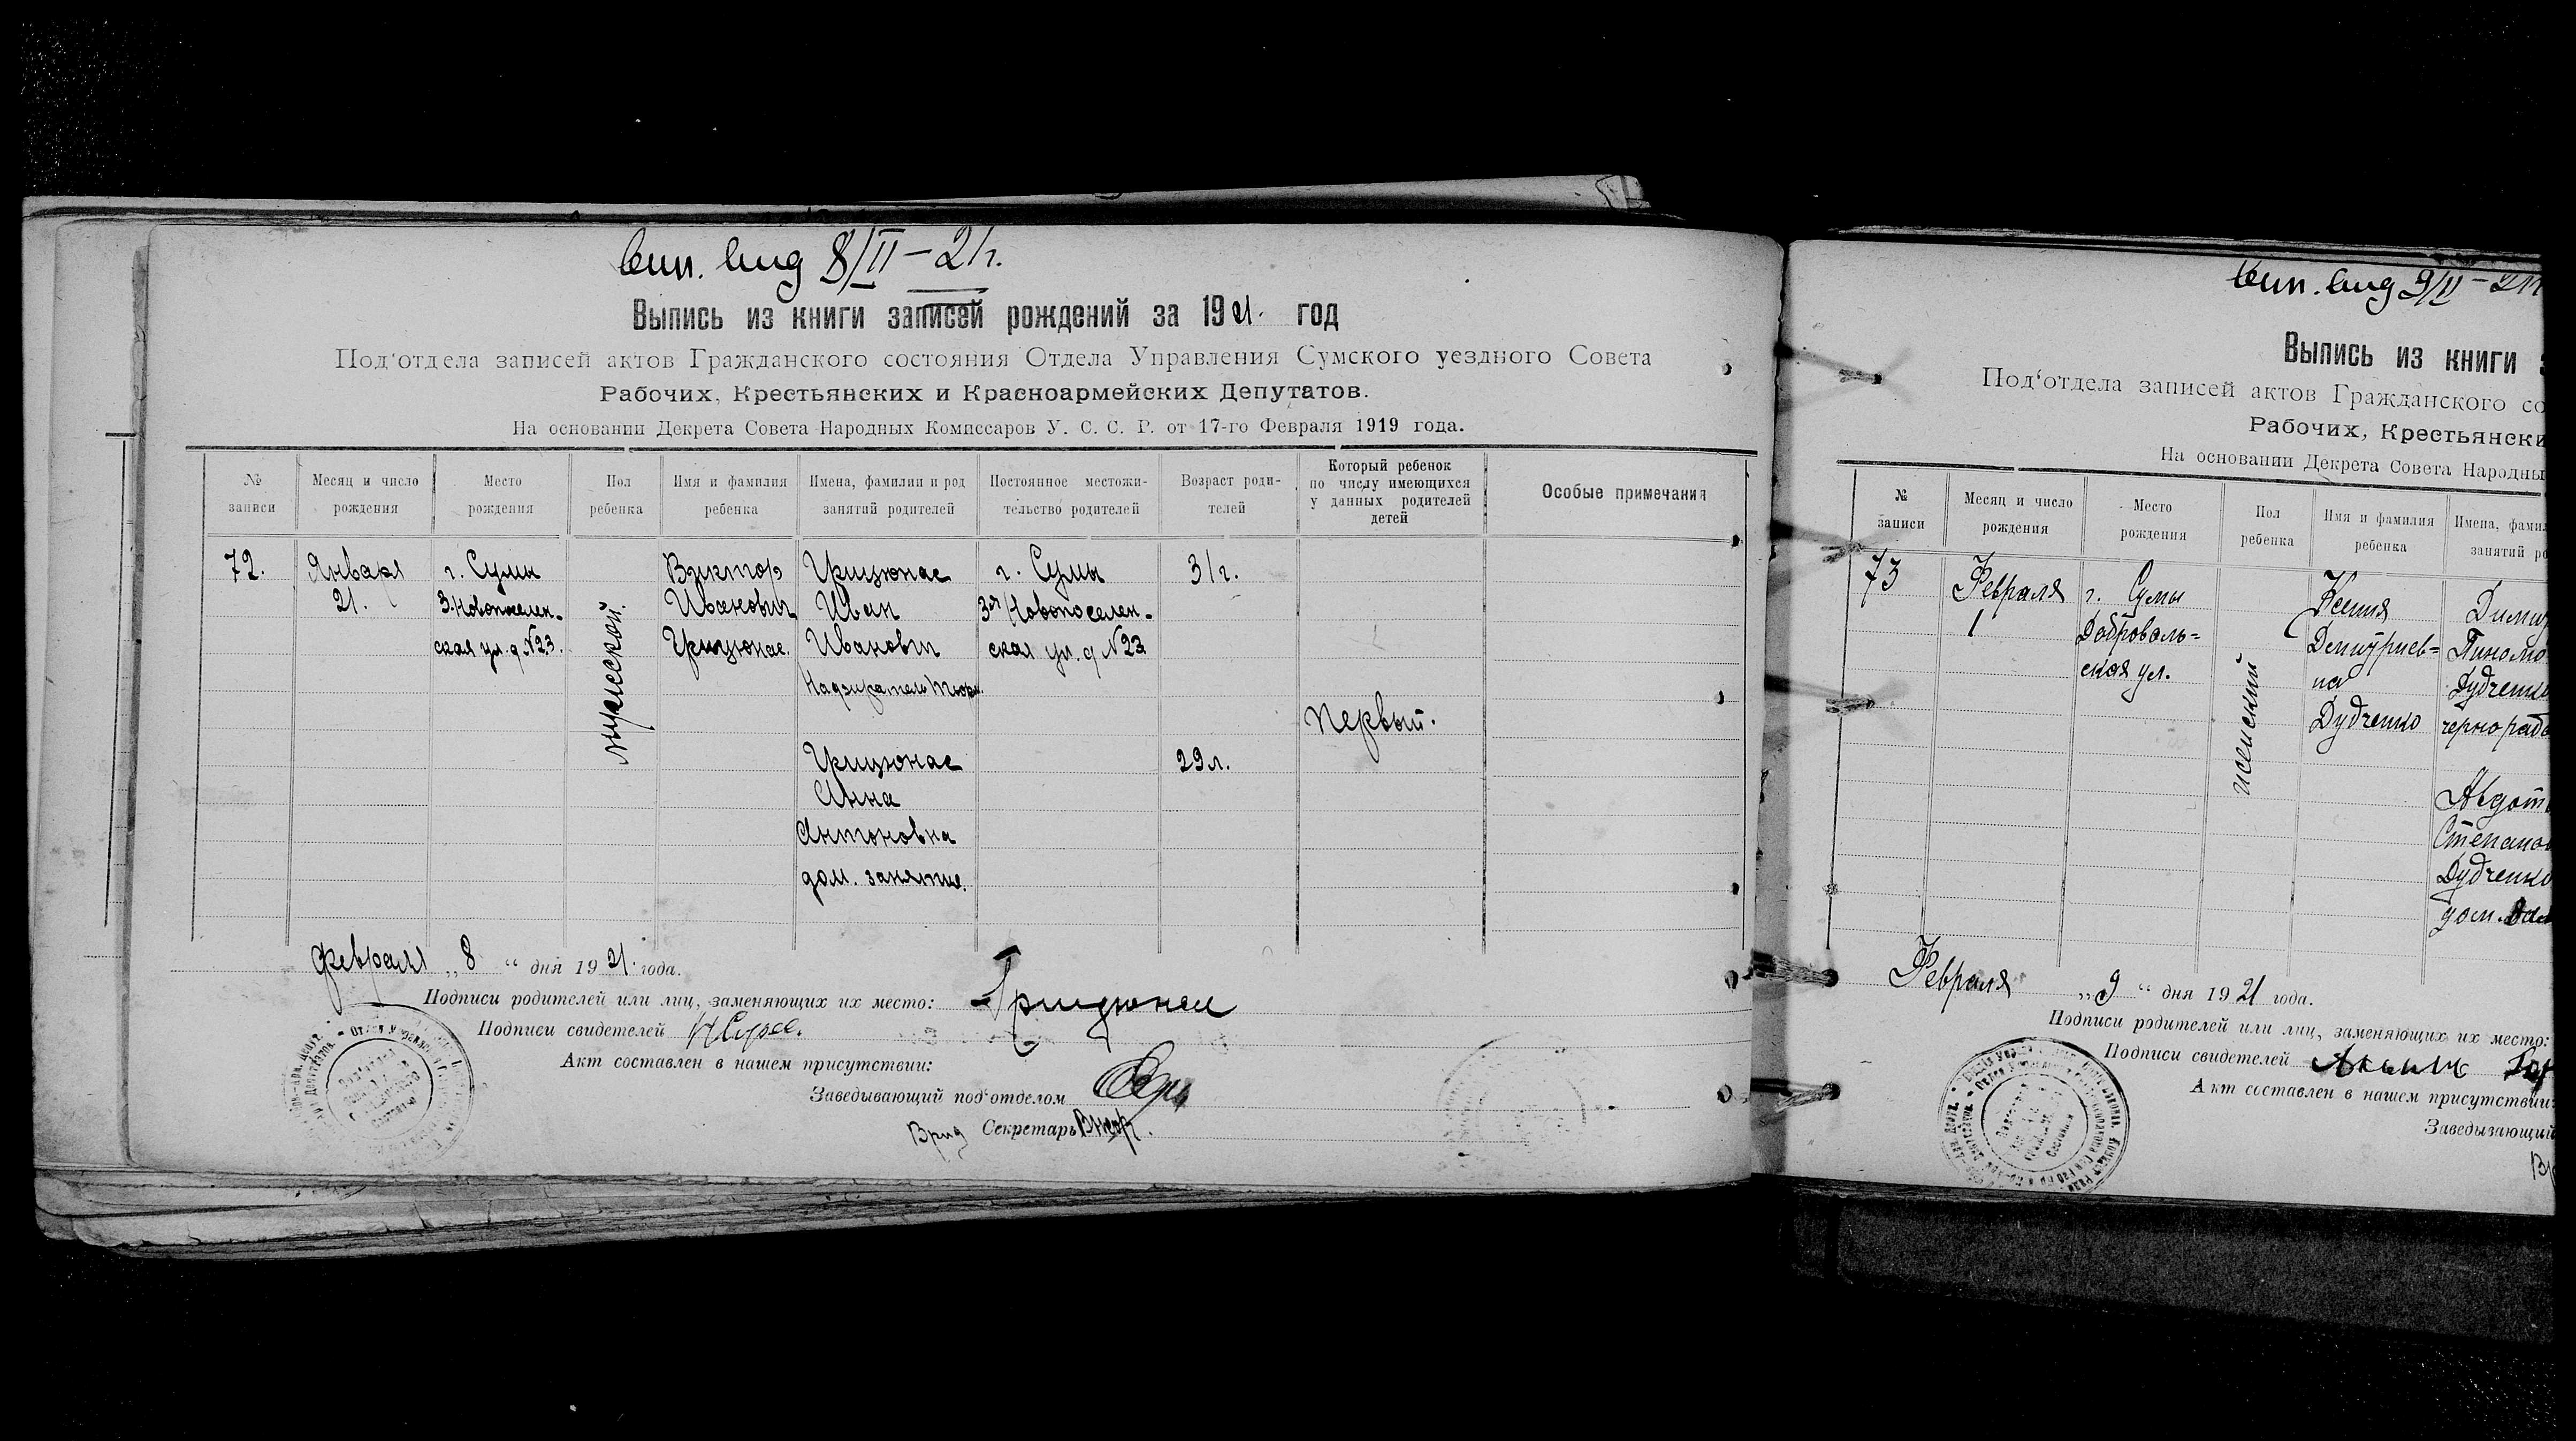 вып. выд 8/II – 21 г.
Выпись из книги записей рождений за 1921. год
Под‘отдела записей актов Гражданского состояния Отдела Управления Сумского уездного Совета
Рабочих, Крестьянских и Красноармейских Депутатов.
На основании Декрета Совета Народных Комиссаров У. С. С. Р. от 17-го Февраля 1919 года.
№ записи
Месяц и число рождения
Место рождения
Пол ребенка
Имя и фамилия ребенка
Имена, фамилии и род занятий родителей
Постоянное местожительство родителей
Возраст родителей
Который ребенок по числу имеющихся у данных родителей детей
Особые примечания
72.
Января
21.
г. Сумы
3. Новопоселен-
ская ул. д. №23.
мужской.
Виктор
Иванович
Грицюнас.
Грицюнас
Иван
Иванович
Надзиратель тюрм.
Грицюнас
Анна
Антоновна
дом. занятие.
г. Сумы
3я Новопоселен-
ская ул. д №23
31 г.
29 л.
Первый.
Февраля „ 8 “ дня 1921. года.
Подписи родителей или лиц, заменяющих их место: Грицюнас
Подписи свидетелей
Акт составлен в нашем присутствии:
Заведывающий под‘отделом
Врид Секретарь
вып. выд 9/II – 21 г
Выпись из книги
Под‘отдела записей актов Гражданского со
Рабочих, Крестьянски
На основании Декрета Совета Народны
№ записи
Месяц и число рождения
Место рождения
Пол ребенка
Имя и фамилия ребенка
Имена, фамил
занятий ро
73
Февраля
1
г. Сумы
Доброволь=
ская ул.
женский
Ксения
Дмитриев=
на
Дудченко
Дудченко
чернорабо
Авдот
Степанов
Дудченко
дом. зан
Февраля „ 9 “ дня 1921 года.
Подписи родителей или лиц, заменяющих их место:
Подписи свидетелей
Акт составлен в нашем присутствии:
Заведывающий